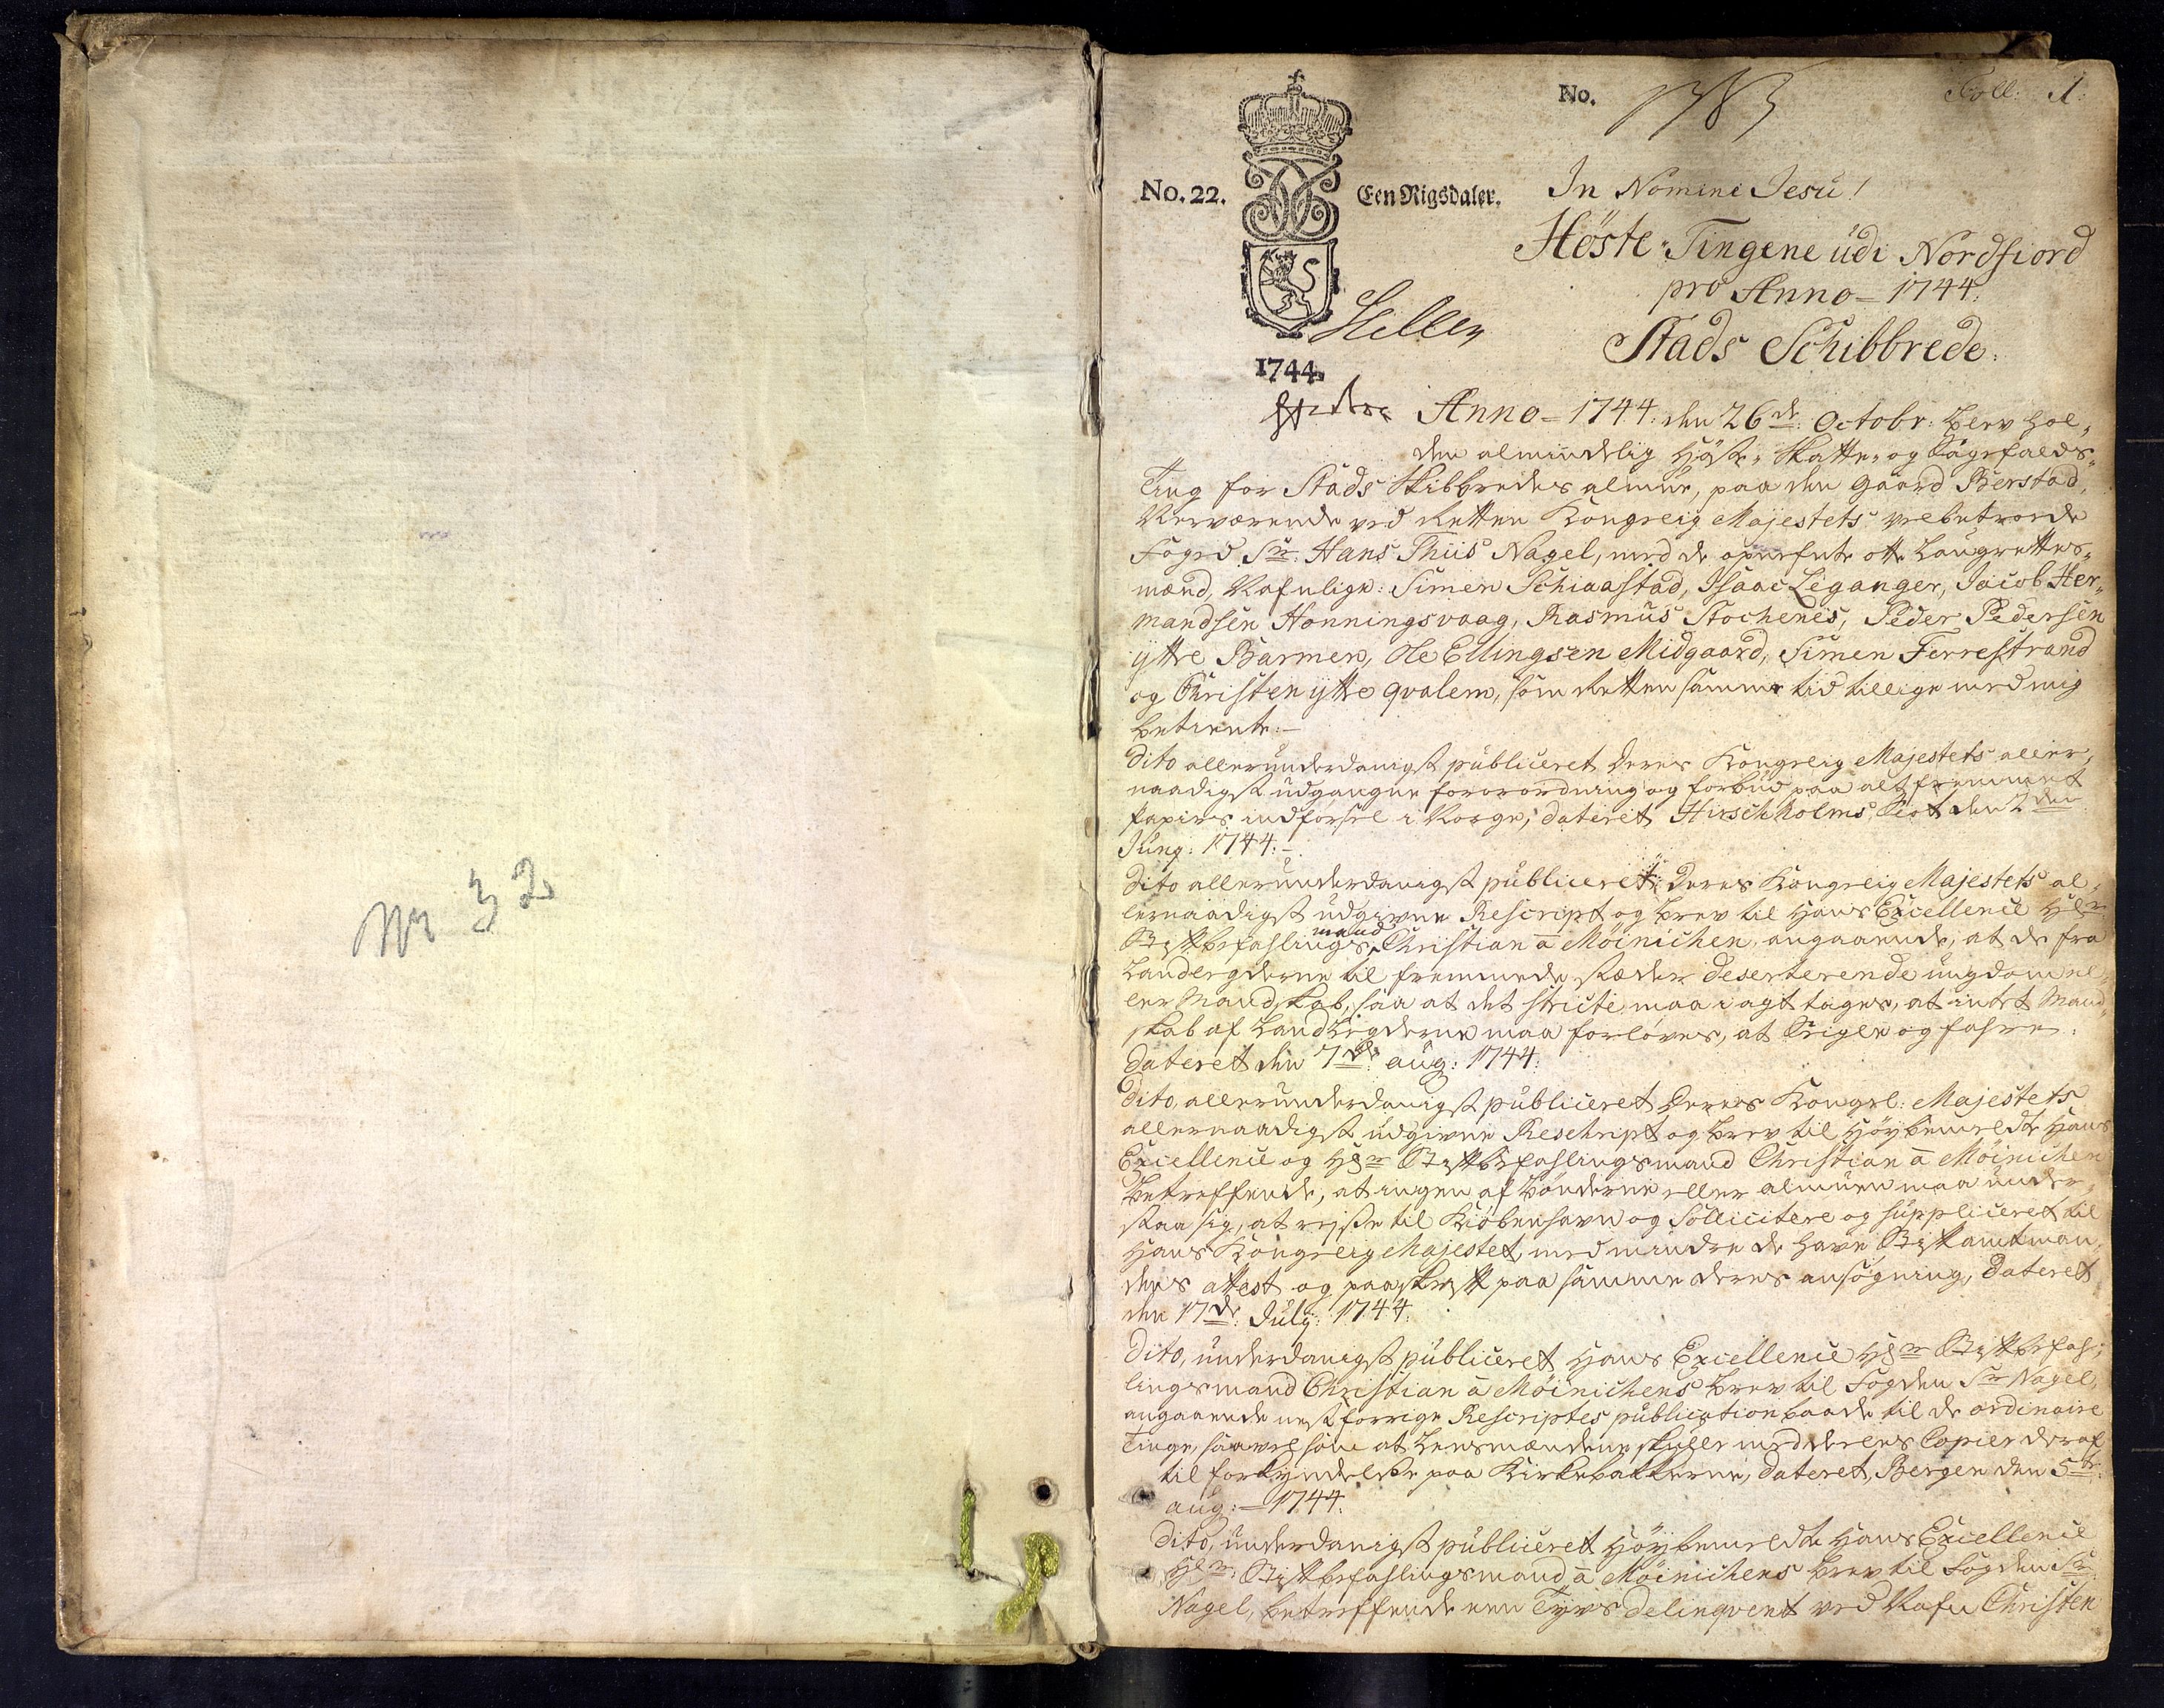 Nr 32
No. 1783
Foll: 1.
No. 22.
Een Rigsdaler.
In Nomine Jesu!
Höste-Tingene udi Nordfiord
pro Anno- 1744.
Hiller
Stads Schibbrede.
1744.
Anno- 1744. den 26de Octobr: blev hol-
den almindelig Höste- Skatte- og Sagefalds-
Ting for Stads Skibbredes almue, paa den gaard Berstad,
Nerværende ved Retten Kongelig Mayestets velbetroede
Foged Sr. Hans Thiis Nagel, med de opnefnte otte Laugrettes-
mænd, Nafnlige: Simen Schiaastad, Isaac Leganger, Jacob Her-
mandsen Honningsvaag, Rasmus Stochenes, Peder Pedersen
ÿttre Barmen, Ole Ellingsen Midgaard, Simen Ferrestrand
og Christen ÿttre qvalem, som Retten samme tid tillige med mig
betiente.-
Dito allerunderdanigst publiceret Deres Kongelig Majestets aller-
naadigst udgangne forordning og forbud paa alt fremmet
Papiirs indførsel i Norge, dateret Hirschholms Slot den 2den
Junÿ: 1744.-
Dito allerunderdanigst publiceret Deres Kongelig Majestets al-
lernaadigst udgivne Rescript og brev til Hans Excellence Hr
Stiftbefahlingsmand Christian a Möinichen, angaaende, at de fra
Landeigderne til fremmede stæder deserterende ungdom el-
ler Mandskab, saa at det stricte maa i agt tages, at intet Mand-
skab af Landeigderne maa forløves, at Seigle og fahre.
dateret den 7de aug: 1744.
Dito, allerunderdanigst publiceret Deres Kongel: Majestets
allernaadigst udgivne Reschript og brev til Höÿbemeldte Hans
Excellence og Hr Stiftbefahlingsmand Christian a Möinichen
betreffende, at ingen af bönderne eller almuen maa under-
staa sig, at reise til Kiöbenhavn og Sollicitere og suppliceret til
Hans Kongelig Majestet, med mindre de have Stiftamtman-
dens attest og paaskrift paa samme deres ansögning, dateret
den 17de Julÿ: 1744.
Dito, underdanigst publiceret Hans Excellence Hr Stiftbefah-
lingsmand Christian a Möinichens brev til Fogden Sr Nagel,
angaaende nest forrige Rescriptes publication baade til de ordinaire
Tinge, saavel som at Lensmændene skulle meddeeles Copier deraf
til forkyndelse paa Kirkebakkerne, dateret, Bergen den 5te
aug:- 1744.
Dito, underdanigst publiceret Höÿbemeldte Hans Excellence
Hr Stiftbefahlingsmand a Möinichens brev til Fogden Sr
Nagel, betreffende een Tyvs Delinqvent ved Nafn Christen